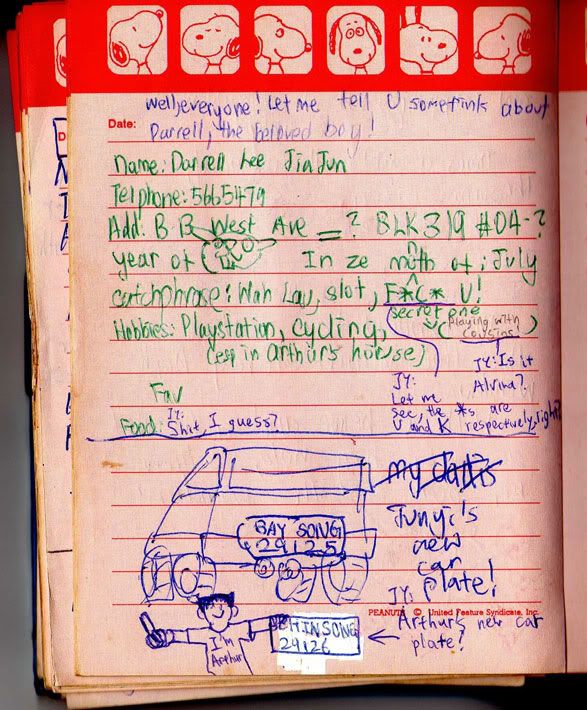 Well, everyone! Let me tell U sometink about
Date: Darrell, the beloved boy!
Name: Darrell Lee Jia Jun
Telphone: 5665479
Add: B B West Ave =? BLK 319 #04-?
year of In ze moth of: July
n
catchphrase: Wah Lau, slot, F*C* U!
secret one
Hobbies: Playstation, cycling, (playing with cousins!)
(esp in Arthur's house)
JY: Is it Alvina?
Fav
Food: JY: Shit, I guess?
JY:
Let me
see, the *s are
U and K respectively, right?
BAY SONG
29125
Junyi's
new
car
JY: plate!
PEANUTS © United Feature Syndicate, Inc.
I'm
Arthur
CHIN SONG
29126
← Arthur's new car
plate?